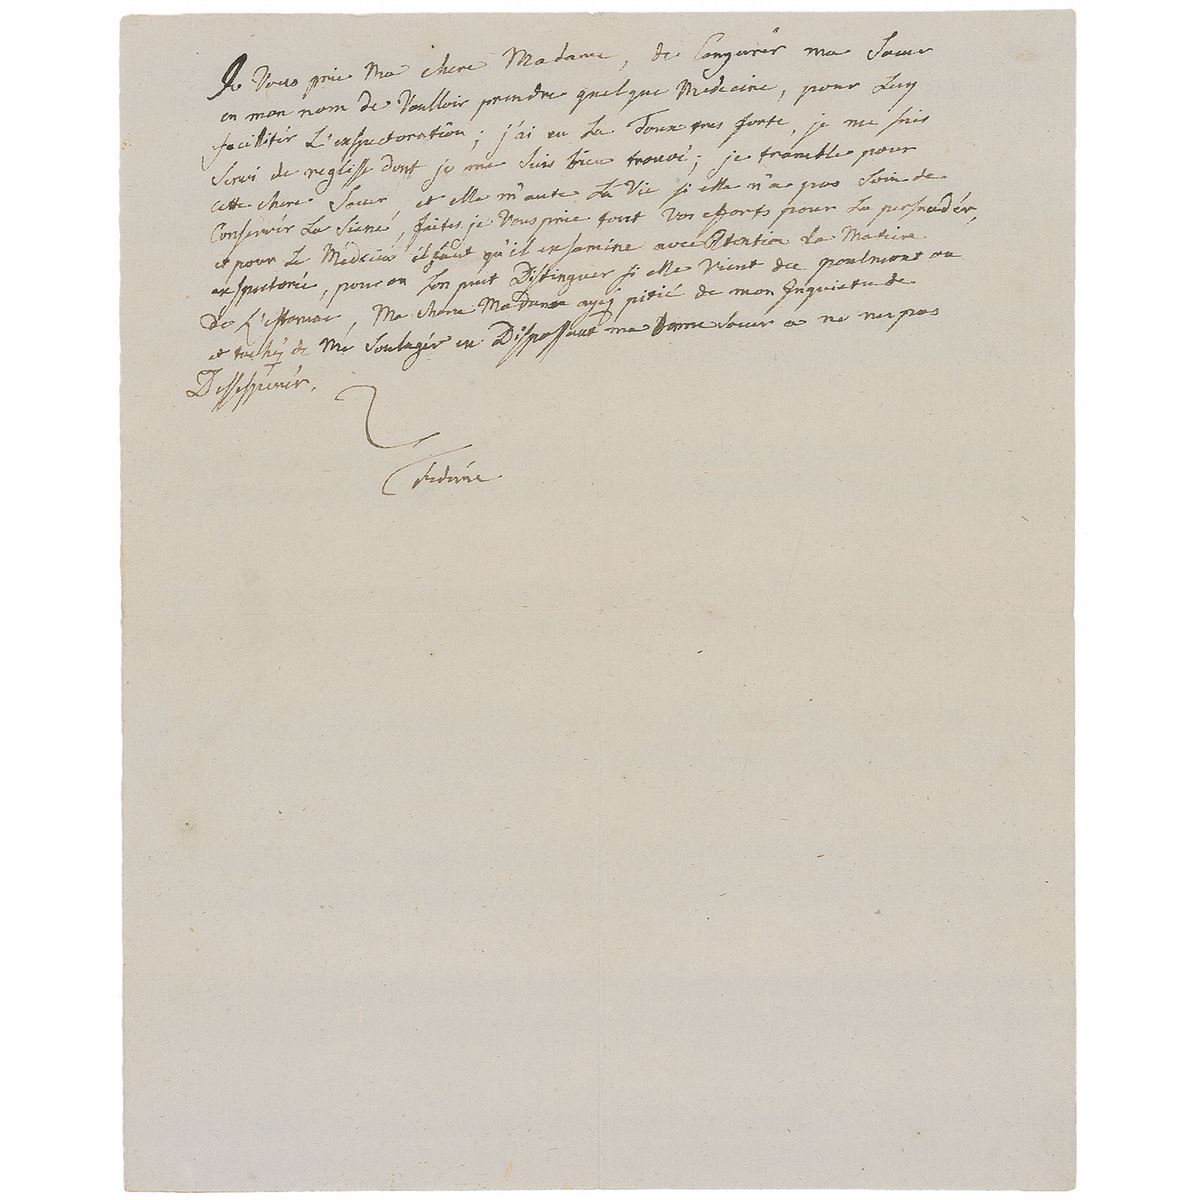 Je Vous prie Ma chere Madame, de Conjurér ma Soeur
en mon nom de Voulloir prendre quelque Medecine, pour Luy
facilitér L'expectoration; j'ai eu La Toux tres forte, je me suis
Servi de reglisse dont je me suis bien trouvé; je tramble pour
cette chere Soeur et elle m'aute La Vie si elle n'a pas Soin de
Conservér La Siene, faites je Vous prie tout Vos efforts pour La persuadér,
et pour Le Médecin il faut qu'il exsamine avec Atention La Matiere
exspectorée, pour que Lon peut Distinguer si elle Vient du poulmont ou
de L'estomac, Ma chere Madame ayéz pitié de mon Inquietude
et tachéz de Me Soulagér en Dispossant ma bonne Soeur a ne me pas
Dessespérér.
Federic